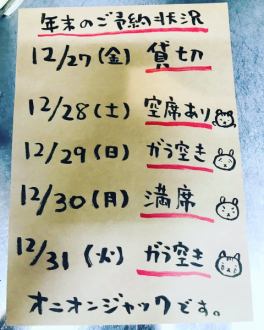 年末のご予約状況
12/27(金) 貸切
12/28(土) 空席あり
12/29(日) ガラ空き
12/30(月) 満席
12/31(火) ガラ空き
オニオンジャックです。